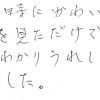 時にかわい
を見ただけで
わかりうれし
した。